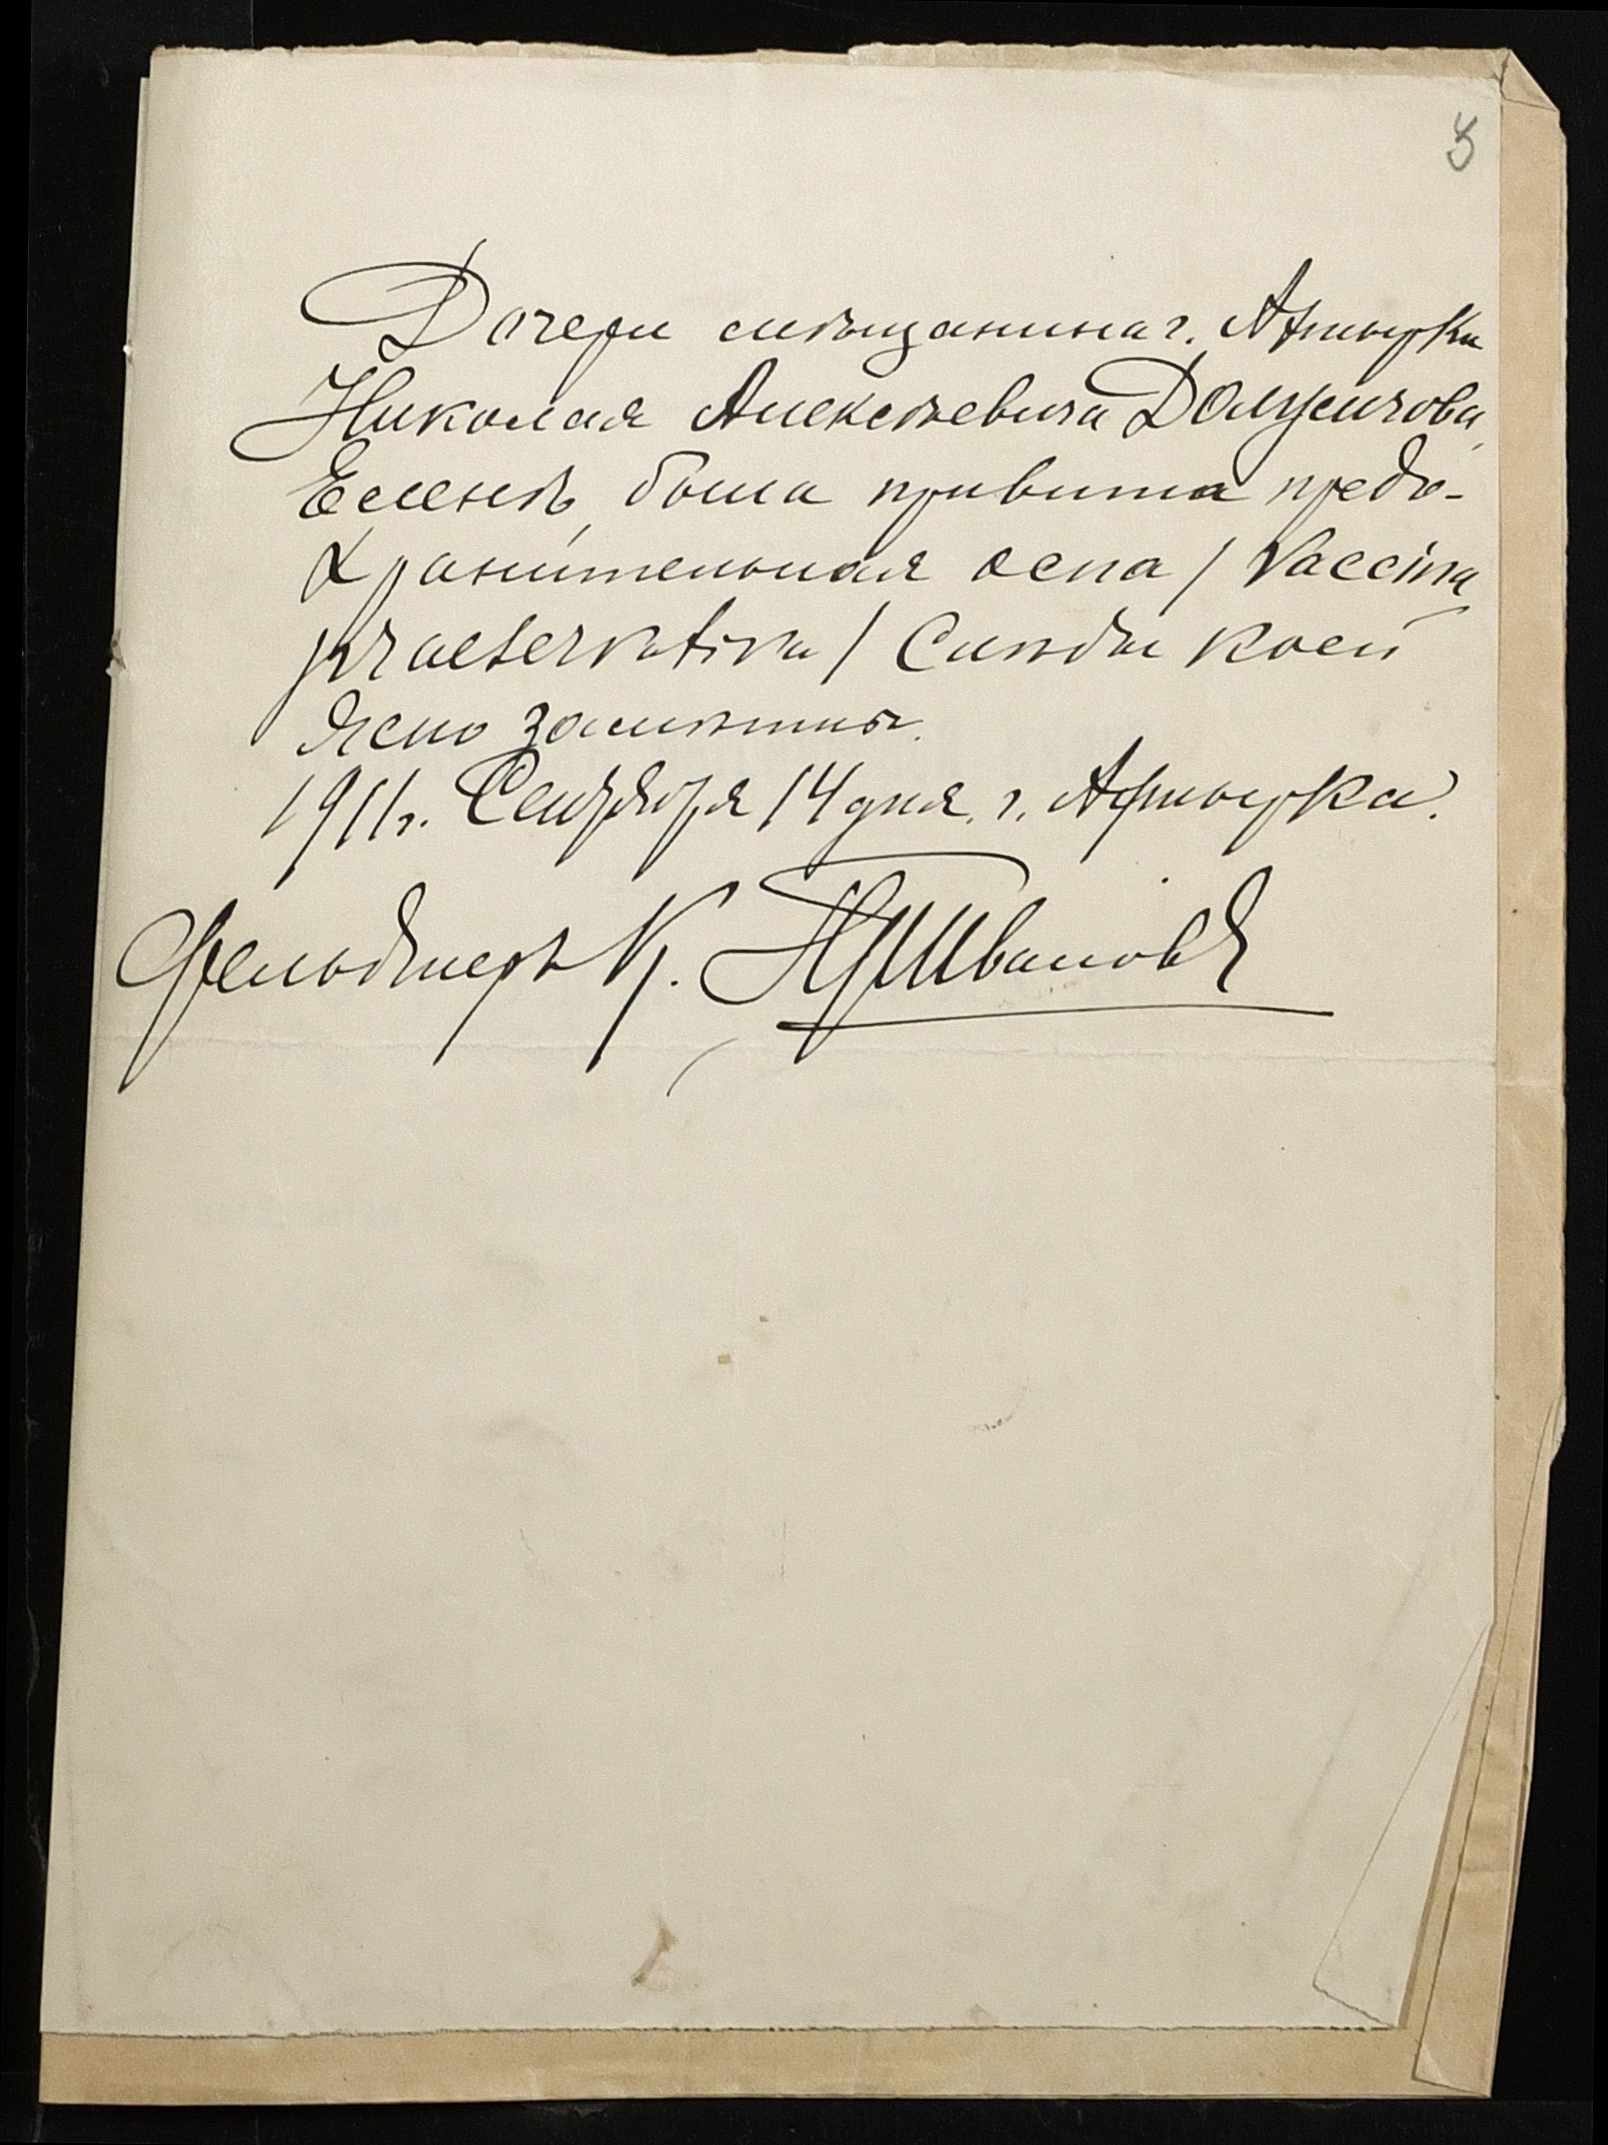 5
Дочери мѣщанина г. Ахтырки
Николая Алексѣевича Должикова
Еленѣ, была привита предо-
хранительная оспа / Vaccina
praeservativa / Слѣды коей
ясно замѣтны.
1911 г. Сентября 14 дня. г. Ахтырка.
Фельдшеръ К.